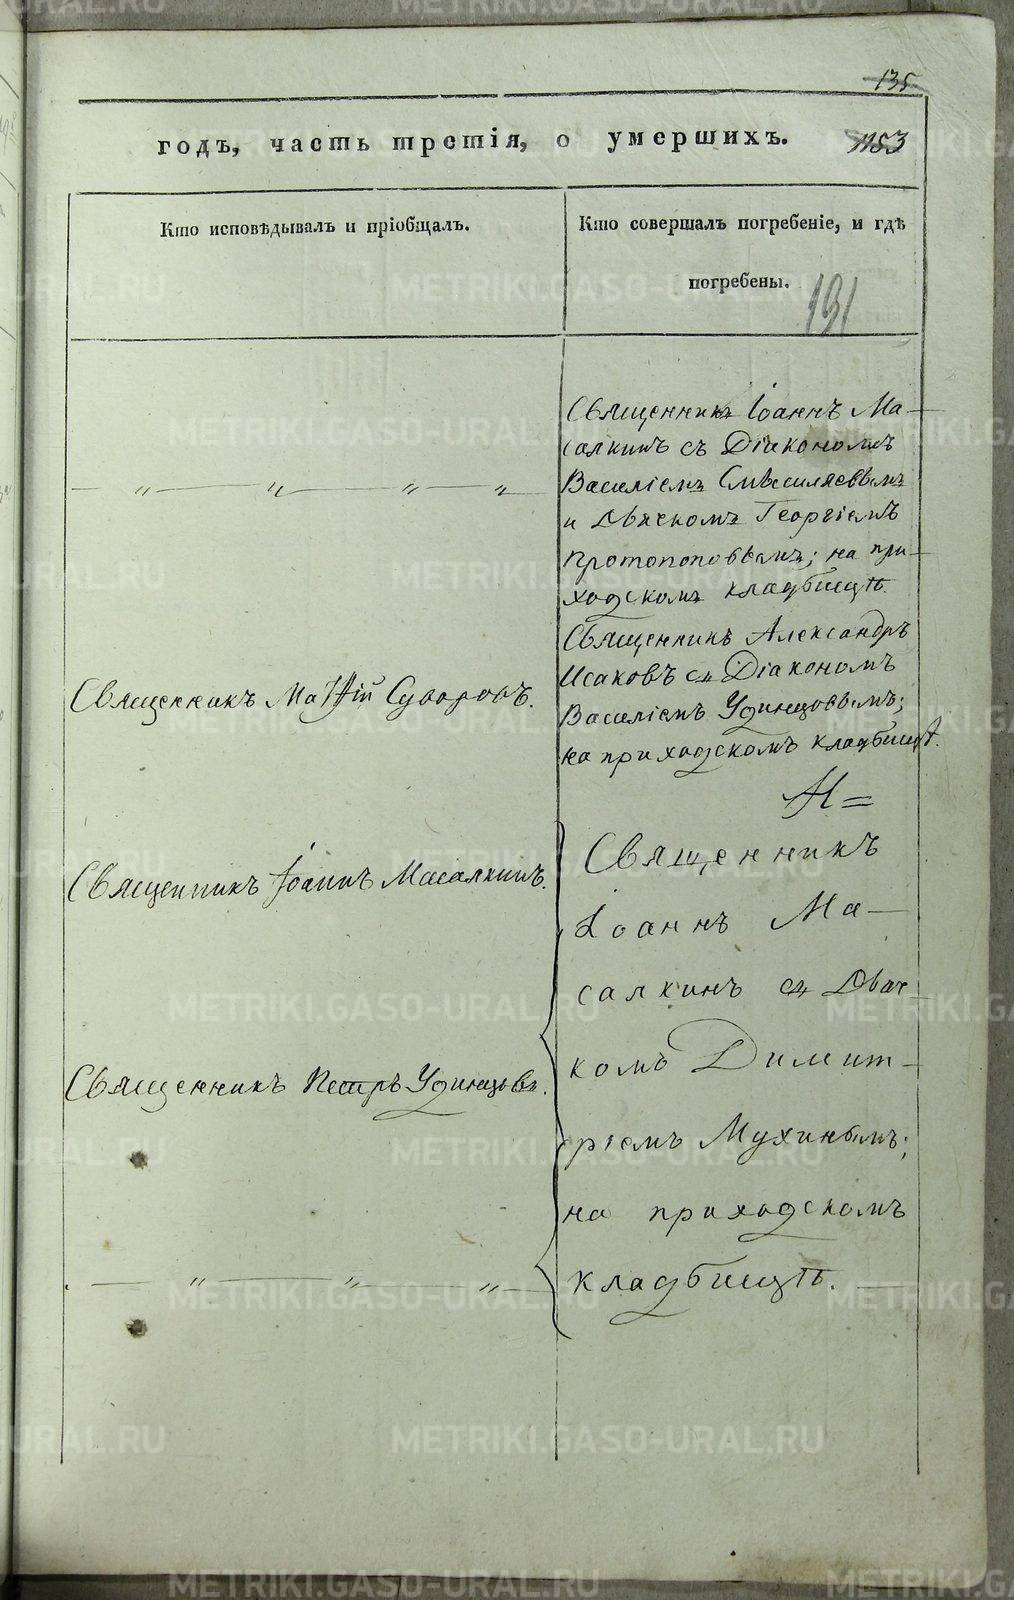 135
годъ, часть третія, о умершихъ. 1153
Кто исповѣдывалъ и пріобщалъ.
Кто совершалъ погребеніе, и гдѣ
погребены.
191
Священникъ Іоаннъ Ма-
салкинъ съ Діакономъ
— „ — „ — „ — „ —
Василіемъ
и Дьячкомъ Георгіемъ
Протопоповымъ; на при-
ходскомъ кладбищѣ.
Священникъ Матѳій Суворовъ.
Священникъ Александръ
Исаковъ съ Діакономъ
Василіемъ Удинцовымъ;
на приходскомъ кладбищѣ.
Священникъ Іоаннъ Масалкинъ.
Священникъ Петръ Удинцовъ.
— „ — „ — „ —
Священникъ
Іоаннъ Ма-
салкинъ съ Дьяч-
комъ Димит-
ріемъ Мухинымъ;
на приходскомъ
кладбищѣ.
METRIKI.GASO-URAL.RU